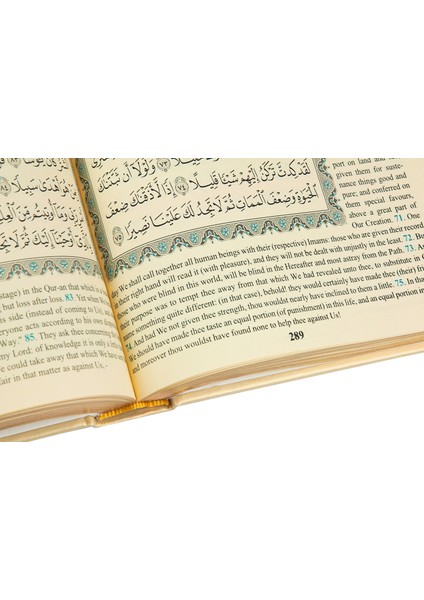 هُوَ أَهْدَىٰ سَبِيلًا ٨٤
رَبِّي وَمَا أُوتِيتُم مِّنَ
أَوْحَيْنَا إِلَيْكَ ثُمَّ لَا تَجِدُ
stage) in the Qur-an that which is a
but loss after loss. 83. Yet when We
side (instead of coming to Us), and
everyone acts according to his own
Way." 85. They ask thee concerning
my Lord: of knowledge it is only a
We could take away that which We have
affair in that matter as against Us,-
٧٣ وَلَوْلَا أَن ثَبَّتْنَٰكَ
لَقَدْ كِدتَّ تَرْكَنُ إِلَيْهِمْ شَيْـًٔا قَلِيلًا ٧٤ إِذًا لَّأَذَقْنَٰكَ ضِعْفَ
ٱلْحَيَوٰةِ وَضِعْفَ ٱلْمَمَاتِ ثُمَّ لَا تَجِدُ لَكَ عَلَيْنَا نَصِيرًا ٧٥
port on land and
given them for suste-
nance things good and
pure; and conferred on
them special favours,
above a great part of
Our Creation. 71. One
day We shall call together all human beings with their (respective) Imams: those who are given their record
in their right hand will read it (with pleasure), and they will not be dealt with unjustly in the least. 72. But
those who were blind in this world, will be blind in the Hereafter and most astray from the Path. 73. And
their purpose was to tempt thee away from that which We had revealed unto thee, to substitute in Our
name something quite different: (in that case), behold! they would certainly have made thee (their) friend!
74. And had We not given thee strength, thou wouldst nearly have inclined to them a little. 75. In that case
We should have made thee taste an equal portion (of punishment) in this life, and an equal portion in
and moreover thou wouldst have found none to help thee against Us!
289